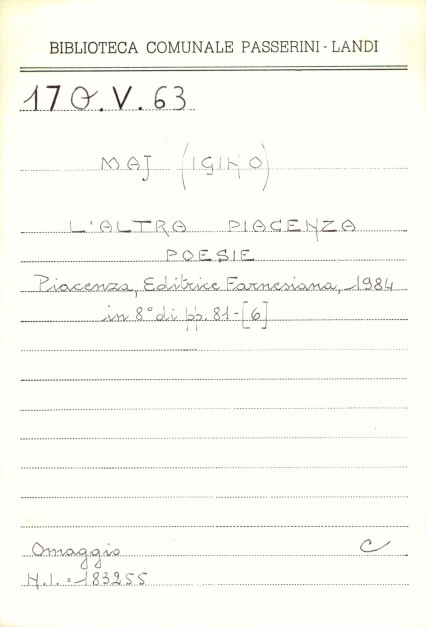 BIBLIOTECA COMUNALE PASSERINI-LANDI
17 O.V. 63
MAJ (IGINO)
L'ALTRA PIACENZA
POESIE
Piacenza, Editrice Farnesiana, 1984
in 8° di pp. 81-[6]
Omaggio C
N.I. = 183255